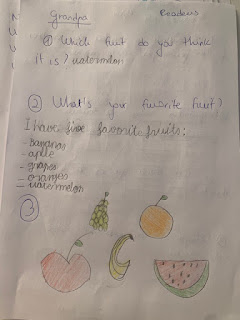 Grandpa Readers
① Which fruit do you think
it is? watermelon
② What's your favorite fruit?
I have five favorite fruits:
- bananas
- apple
- grapes
- oranges
- watermelon
③